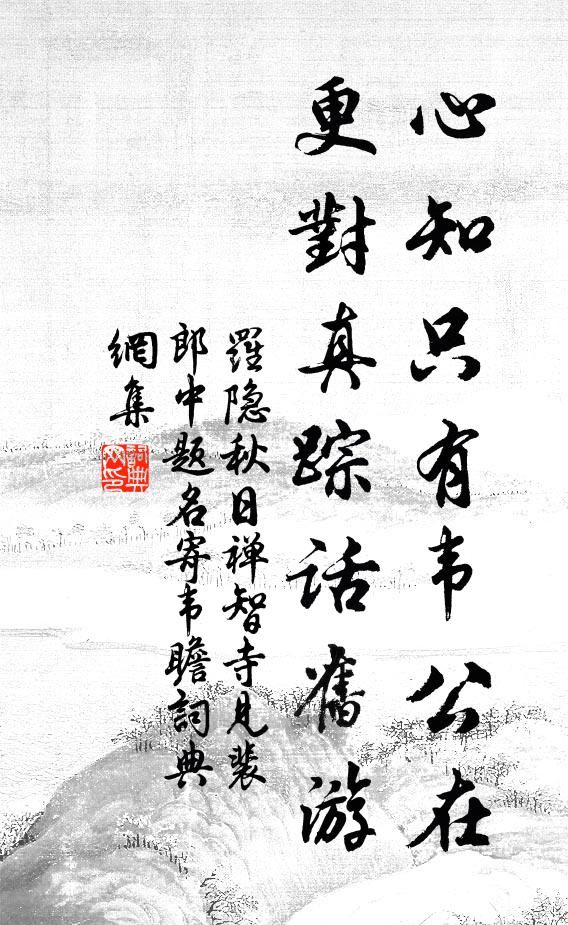 心知只有韦公在
更對真踪話舊游
羅隐秋日禅智寺見裴
郎中题名寄韦瞻詞典
網集
詞典网印